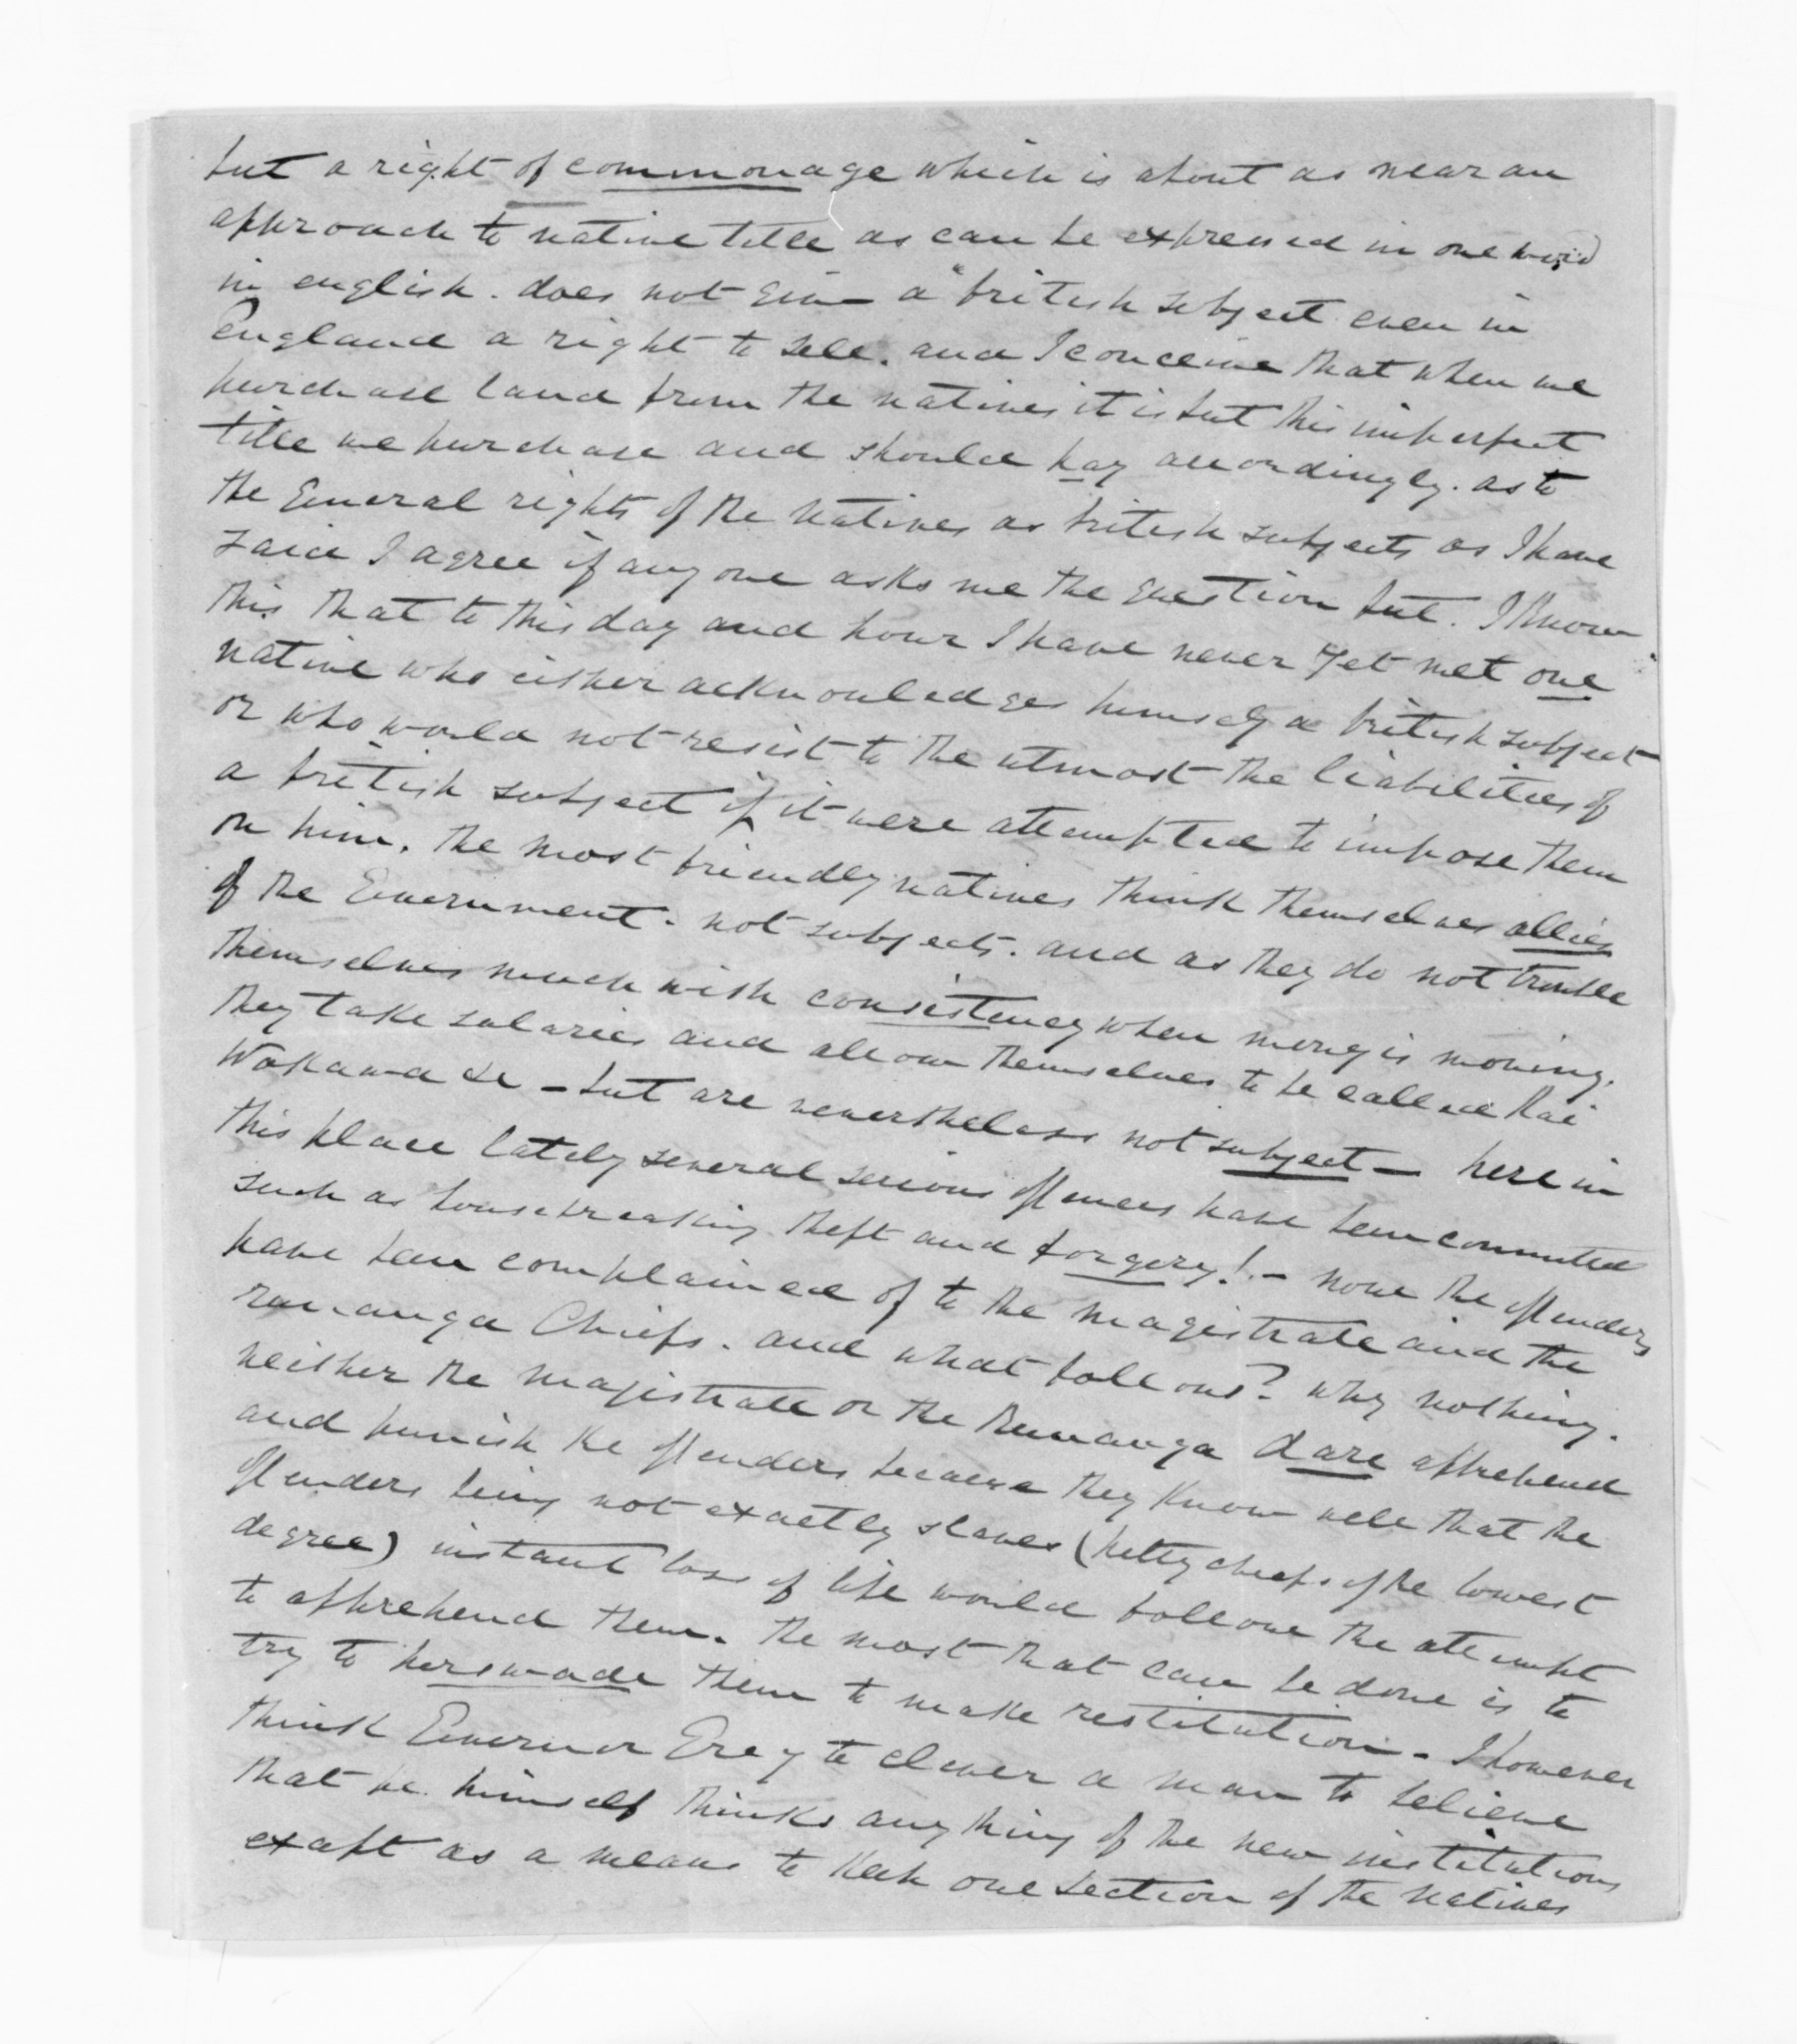 but a right of commonage which is about as near an
approach to native title as can be expressed in one word
in english. does not give a british subject even in
England a right to sell. and I conceive that when we
purchase land from the natives it is but this imperfect
title we purchase and should pay accordingly. as to
the General rights of the Natives as british subjects as I have
said I agree if any one asks me the question but. I Know
this that to this day and hour I have never yet met one
native who either acknowledges himself a british subject
or who would not resist to the utmost the liabilities of
a british subject if it were attempted to impose them
on him. the most friendly natives think themselves allies
of the Government. not subjects. and as they do not trouble
themselves much with consistency when money is moving.
they take salaries and allow themselves to be called Kai
Wakawa &c – but are nevertheless not subject – here in
this place lately several serious offences have been committed
such as housebreaking theft and forgery! – now the offenders
have been complained of to the magistrate and the
runanga Chiefs. and what follows? why nothing.
neither the magistrate or the Runanga dare apprehend
and punish the offenders because they Know well that the
offenders being not exactly slaves (petty chiefs of the lowest
degree) instant loss of life would follow the attempt
to apprehend them. the most that can be done is to
try to perswade them to make restitution. I however
think Governor Grey to clever a man to believe
that he himself thinks anything of the new institutions
exapt as a means to Keep one section of the natives